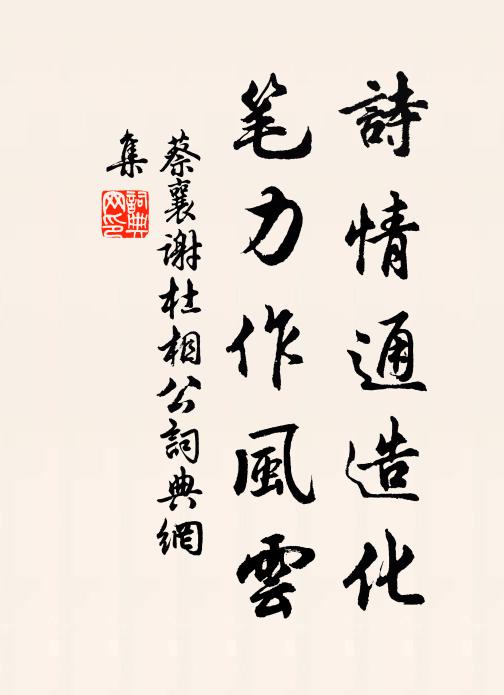 詩情通造化
笔力作風雲
蔡襄谢杜相公詞典網
集
詞典
网印